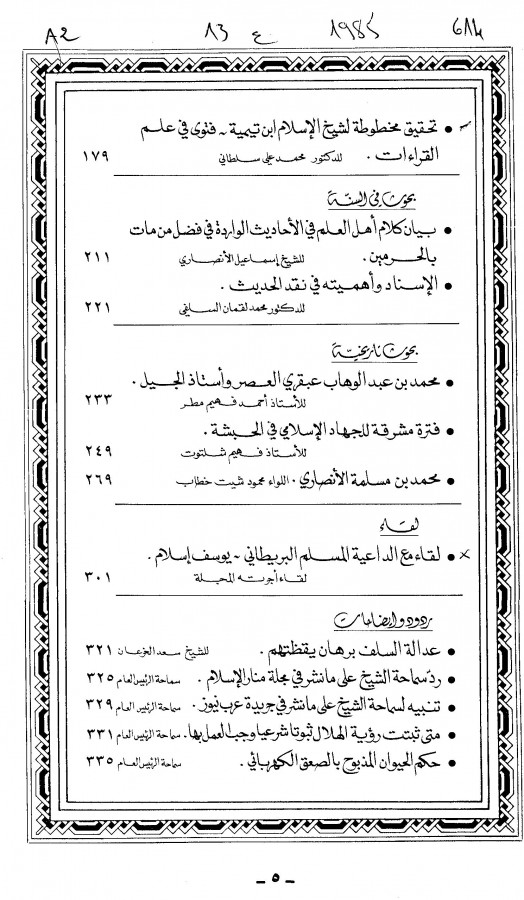 A2 13 ع 1985 614
• تحقيق مخطوطة لشيخ الإسلام ابن تيمية ـ فتوى في علم
القراءات . للدكتور محمد علي سلطاني ١٧٩
بحوث في السنة
• بيان كلام أهل العلم في الأحاديث الواردة في فضل من مات
بالحرمين . للشيخ إسماعيل الأنصاري ٢١١
• الإسناد وأهميته في نقد الحديث .
للدكتور محمد لقمان السلفي ٢٢١
بحوث تاريخية
• محمد بن عبد الوهاب عبقري العصر وأستاذ الجيل .
للأستاذ أحمد فهيم مطر ٢٣٣
• فترة مشرقة للجهاد الإسلامي في الحبشة .
للأستاذ فهيم شلتوت ٢٤٩
• محمد بن مسلمة الأنصاري . اللواء محمود شيت خطاب ٢٦٩
لقاء
• لقاء مع الداعية المسلم البريطاني ـ يوسف إسلام .
لقاء أجرته المجلة ٣٠١
ردود وإيضاحات
• عدالة السلف برهان يقظتهم . للشيخ سعد العزعان ٣٢١
• ردّ سماحة الشيخ على ما نشر في مجلة منار الإسلام . سماحة الرئيس العام ٣٢٥
• تنبيه لسماحة الشيخ على ما نشر في جريدة عرب نيوز . سماحة الرئيس العام ٣٢٩
• متى ثبتت رؤية الهلال ثبوتا شرعيا وجب العمل بها . سماحة الرئيس العام ٣٣١
• حكم الحيوان المذبوح بالصعق الكهربائي . سماحة الرئيس العام ٣٣٥
ـ ٥ ـ